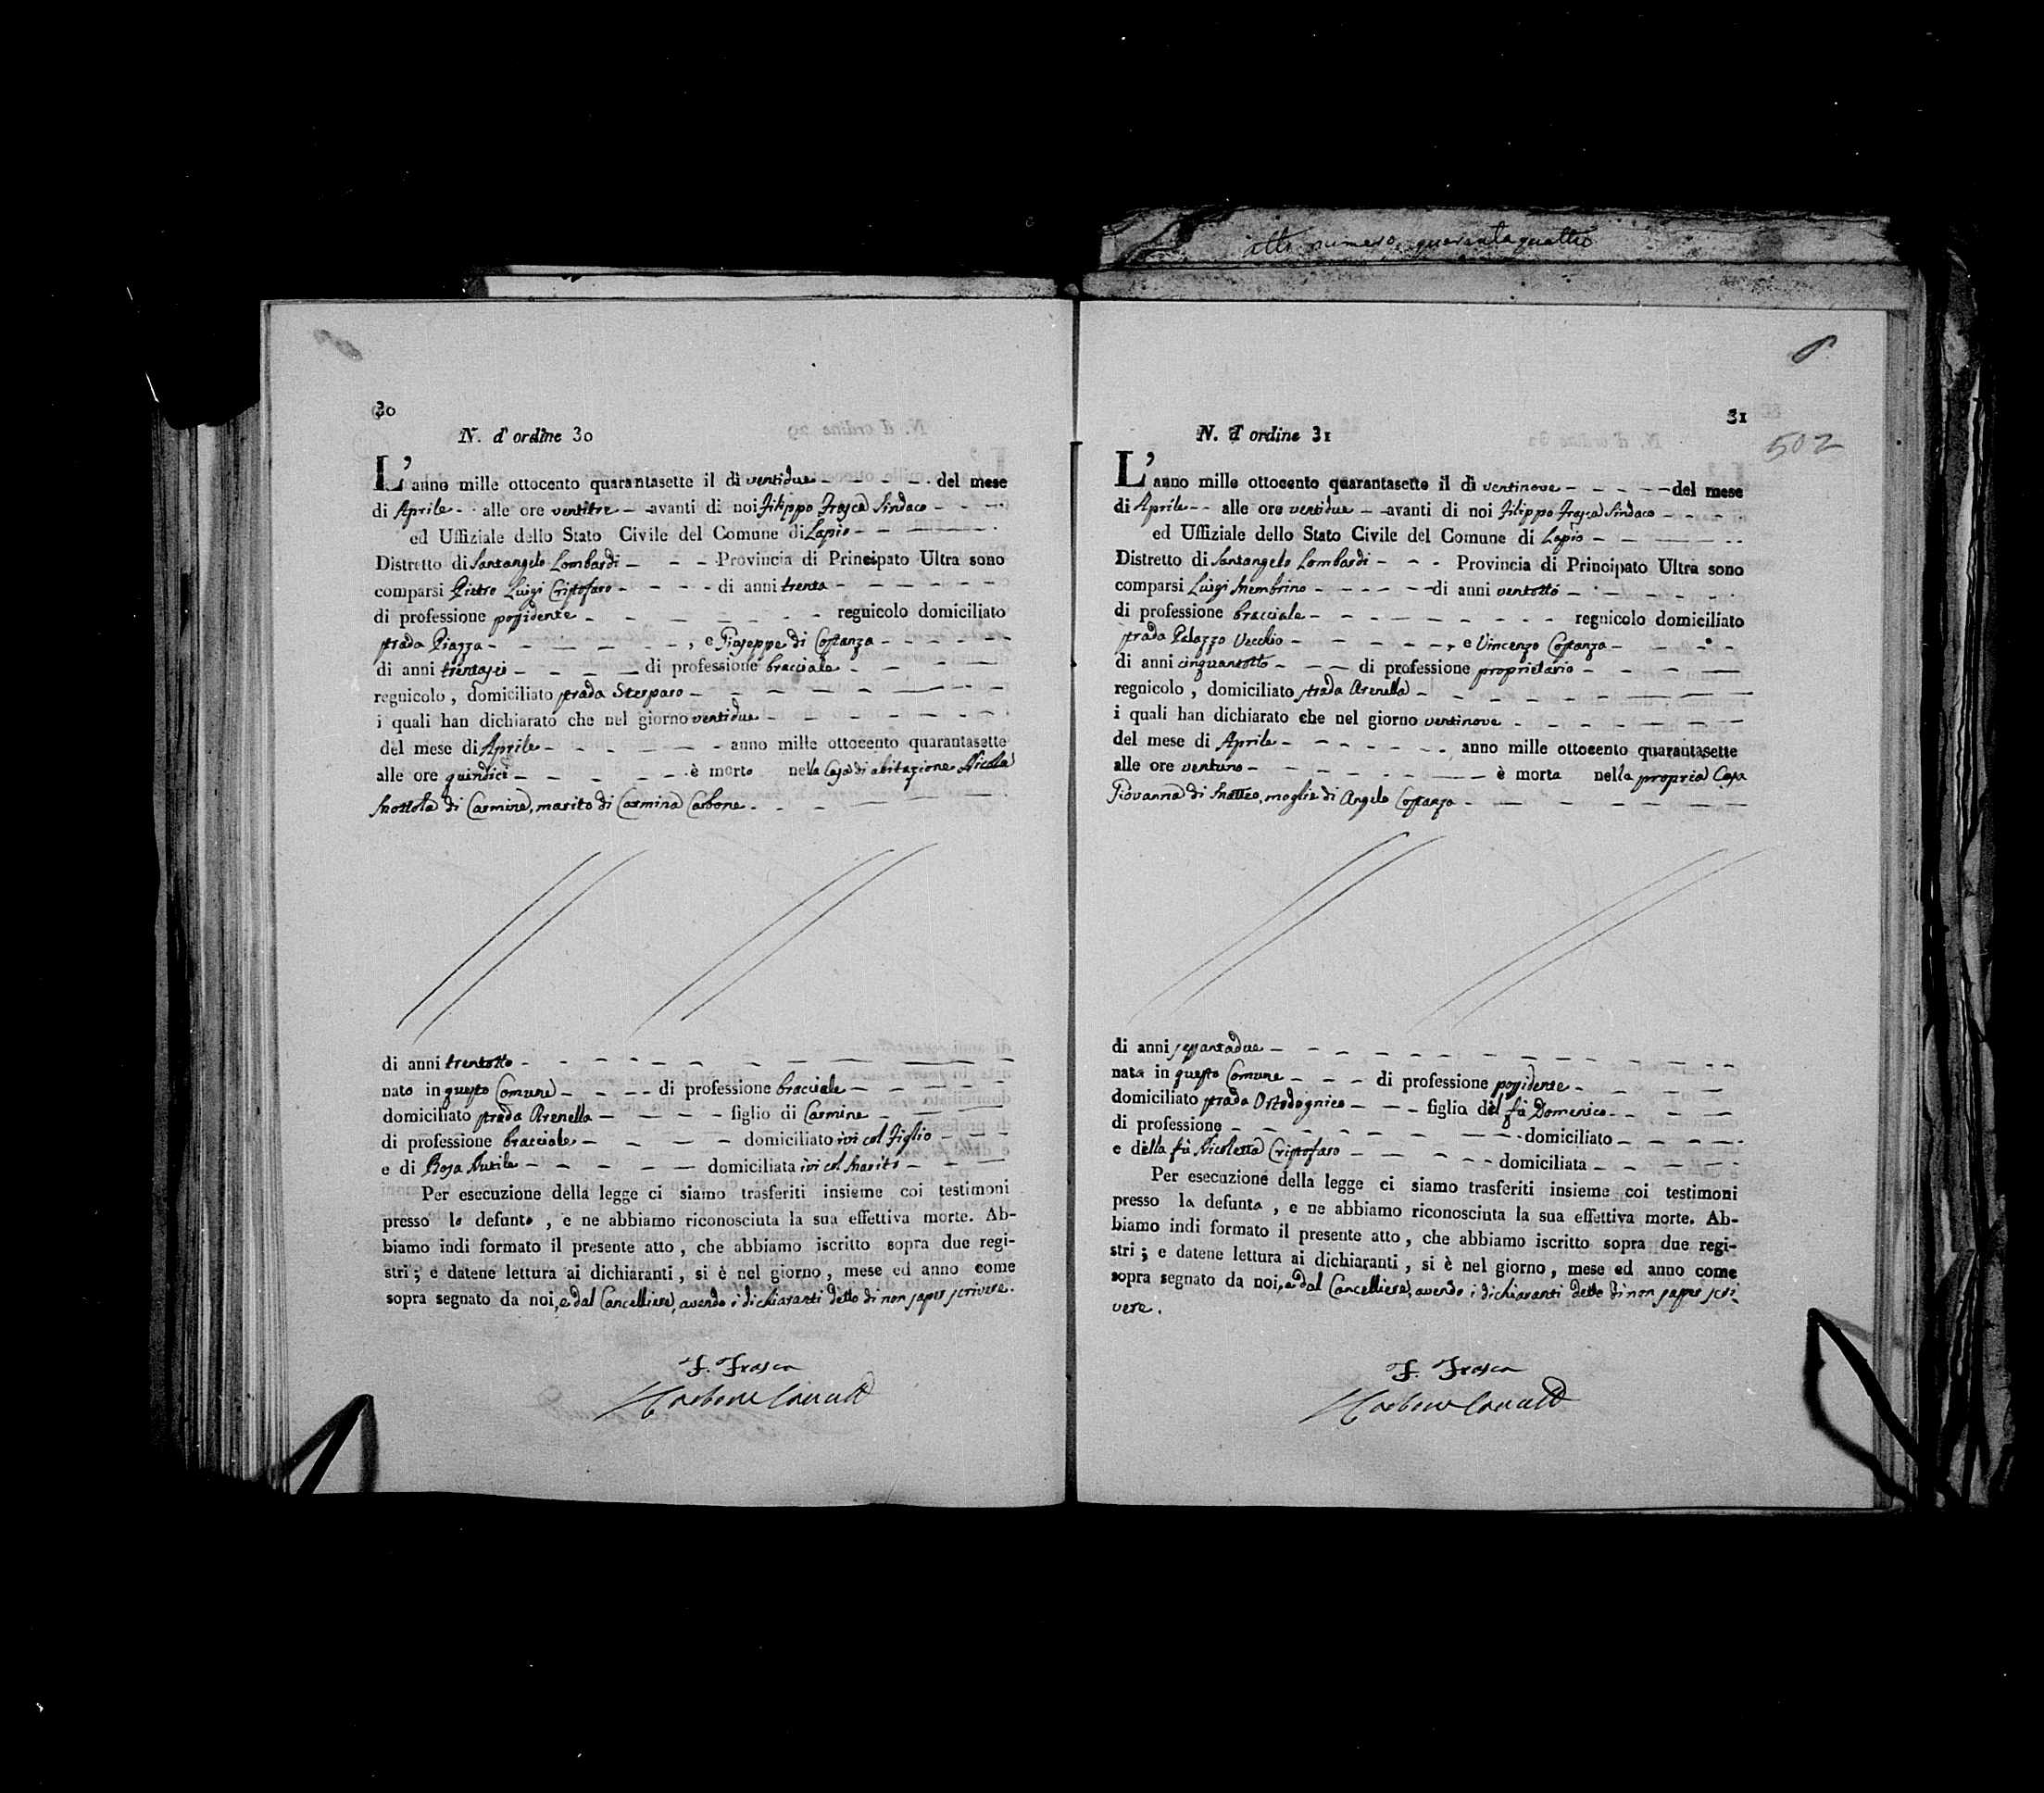 atto numero quarantaquattro
30
N. d' ordine 30
L' anno mille ottocento quarantasette il dì ventidue - - - - - del mese
di Aprile - - alle ore ventitre - - avanti di noi Filippo Frasca Sindaco - - - -
ed Uffiziale dello Stato Civile del Comune di Lapio - - - - -
Distretto di Santangelo Lombardi - - - Provincia di Principato Ultra sono
comparsi Pietro Luigi Cristofaro - - - - di anni trenta - - - - - - -
di professione possidente - - - - - - - regnicolo domiciliato
strada Piazza - - - - - - - , e Giuseppe di Costanza - - - - - -
di anni trentasei - - - - di professione bracciale - - - - -
regnicolo , domiciliato strada Sterparo - - - - - - - - -
i quali han dichiarato che nel giorno ventidue - - - - - - - -
del mese di Aprile - - - - - - anno mille ottocento quarantasette
alle ore quindici - - - - - - è morto nella Casa di abitazione Nicola
Mottola di Carmine, marito di Carmina Carbone - - - - - -
di anni trentotto - - - - - - - - - - - -
nato in questo Comune - - - - di professione bracciale - - - - - -
domiciliato strada Arenella - - - - figlio di Carmine - - - -
di professione bracciale - - - - domiciliato ivi col Figlio - - -
e di Rosa Aurile - - - - - domiciliata ivi col Marito - - -
Per esecuzione della legge ci siamo trasferiti insieme coi testimoni
presso lo defunto , e ne abbiamo riconosciuta la sua effettiva morte. Ab-
biamo indi formato il presente atto , che abbiamo iscritto sopra due regi-
stri ; e datene lettura ai dichiaranti , si è nel giorno , mese ed anno come
sopra segnato da noi, e dal Cancelliere, avendo i dichiaranti detto di non saper scrivere.
F. Frasca
31
502
N. d' ordine 31
L' anno mille ottocento quarantasette il dì ventinove - - - - - del mese
di Aprile - - alle ore ventidue - - avanti di noi Filippo Frasca Sindaco - - - -
ed Uffiziale dello Stato Civile del Comune di Lapio - - - - -
Distretto di Santangelo Lombardi - - - Provincia di Principato Ultra sono
comparsi Luigi Membrino - - - - - di anni ventotto - - - - - -
di professione bracciale - - - - - - - - regnicolo domiciliato
strada Palazzo Vecchio - - - - - - , e Vincenzo Costanza - - - -
di anni cinquantotto - - - di professione proprietario - - - -
regnicolo , domiciliato strada Arenella - - - - - - - - -
i quali han dichiarato che nel giorno ventinove - - - - - - -
del mese di Aprile - - - - - - - anno mille ottocento quarantasette
alle ore ventuno - - - - - - - - è morta nella propria Casa
Giovanna di Matteo, moglie di Angelo Costanzo - - - - - - -
di anni sessantadue - - - - - - - - - - - -
nata in questo Comune - - - di professione possidente - - - -
domiciliato strada Ortodognico - - - figlia del fù Domenico - - - -
di professione - - - - - - - - - domiciliato - - - - -
e della fù Nicoletta Cristofaro - - - - - domiciliata - - - - -
Per esecuzione della legge ci siamo trasferiti insieme coi testimoni
presso la defunta , e ne abbiamo riconosciuta la sua effettiva morte. Ab-
biamo indi formato il presente atto , che abbiamo iscritto sopra due regi-
stri ; e datene lettura ai dichiaranti , si è nel giorno , mese ed anno come
sopra segnato da noi, e dal Cancelliere, avendo i dichiaranti detto di non saper scri
vere.
F. Frasca